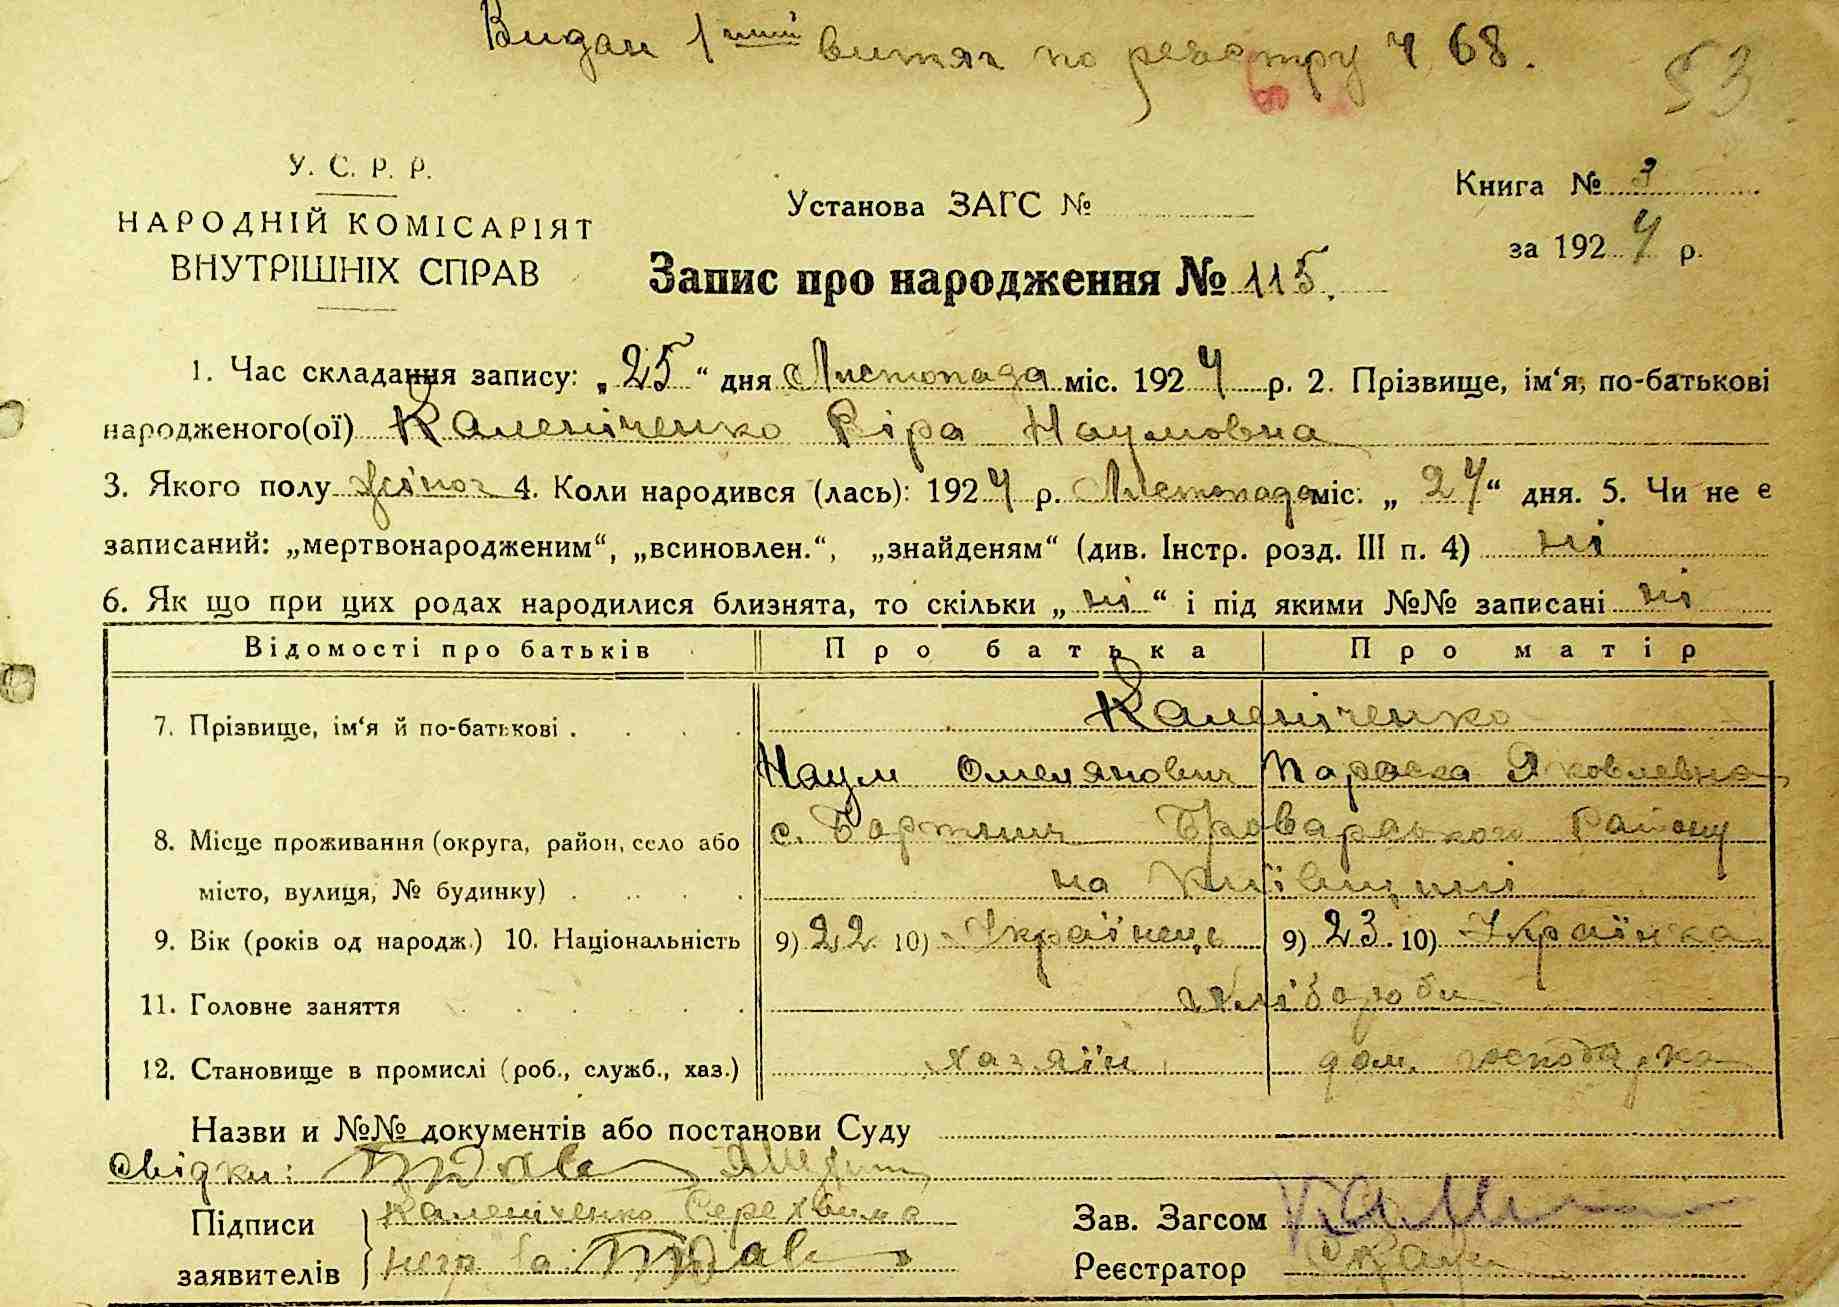 Видан 1ший витяг по реєстру ч 68.
53
У. С. Р. Р.
НАРОДНІЙ КОМІСАРІЯТ
ВНУТРІШНІХ СПРАВ
Установа ЗАГС №
Книга № 3
за 1924 р.
Запис про народження № 115.
1. Час складання запису: „25“ дня Листопада міс. 1924 р. 2. Прізвище, ім‘я, по-батькові
народженого(ої) Каленіченко Віра Наумовна
3. Якого полу жіноч 4. Коли народився (лась): 1924 р. Листопада міс. „24“ дня. 5. Чи не є
записаний: „мертвонародженим“, „всиновлен.“, „знайденям“ (див. Інстр. розд. III п. 4) ні
6. Як що при цих родах народилися близнята, то скільки „ні“ і під якими №№ записані ні
Відомості про батьків Про батька Про матір
7. Прізвище, ім‘я й по-батькові . Каленіченко
Наум Омелянович Параска Яковлевна
8. Місце проживання (округа, район, село або с. Бортнич Броварського району
місто, вулиця, № будинку) . на Київщині
9. Вік (років од народж.) 10. Національність 9) 22 10) Українець 9) 23. 10) Українка
11. Головне заняття хлібороби
12. Становище в промислі (роб., служб., хаз.) хазяїн дом. господарка
Назви и №№ документів або постанови Суду
Свідки:
Підписи Каленіченко Зав. Загсом
заявителів Реєстратор